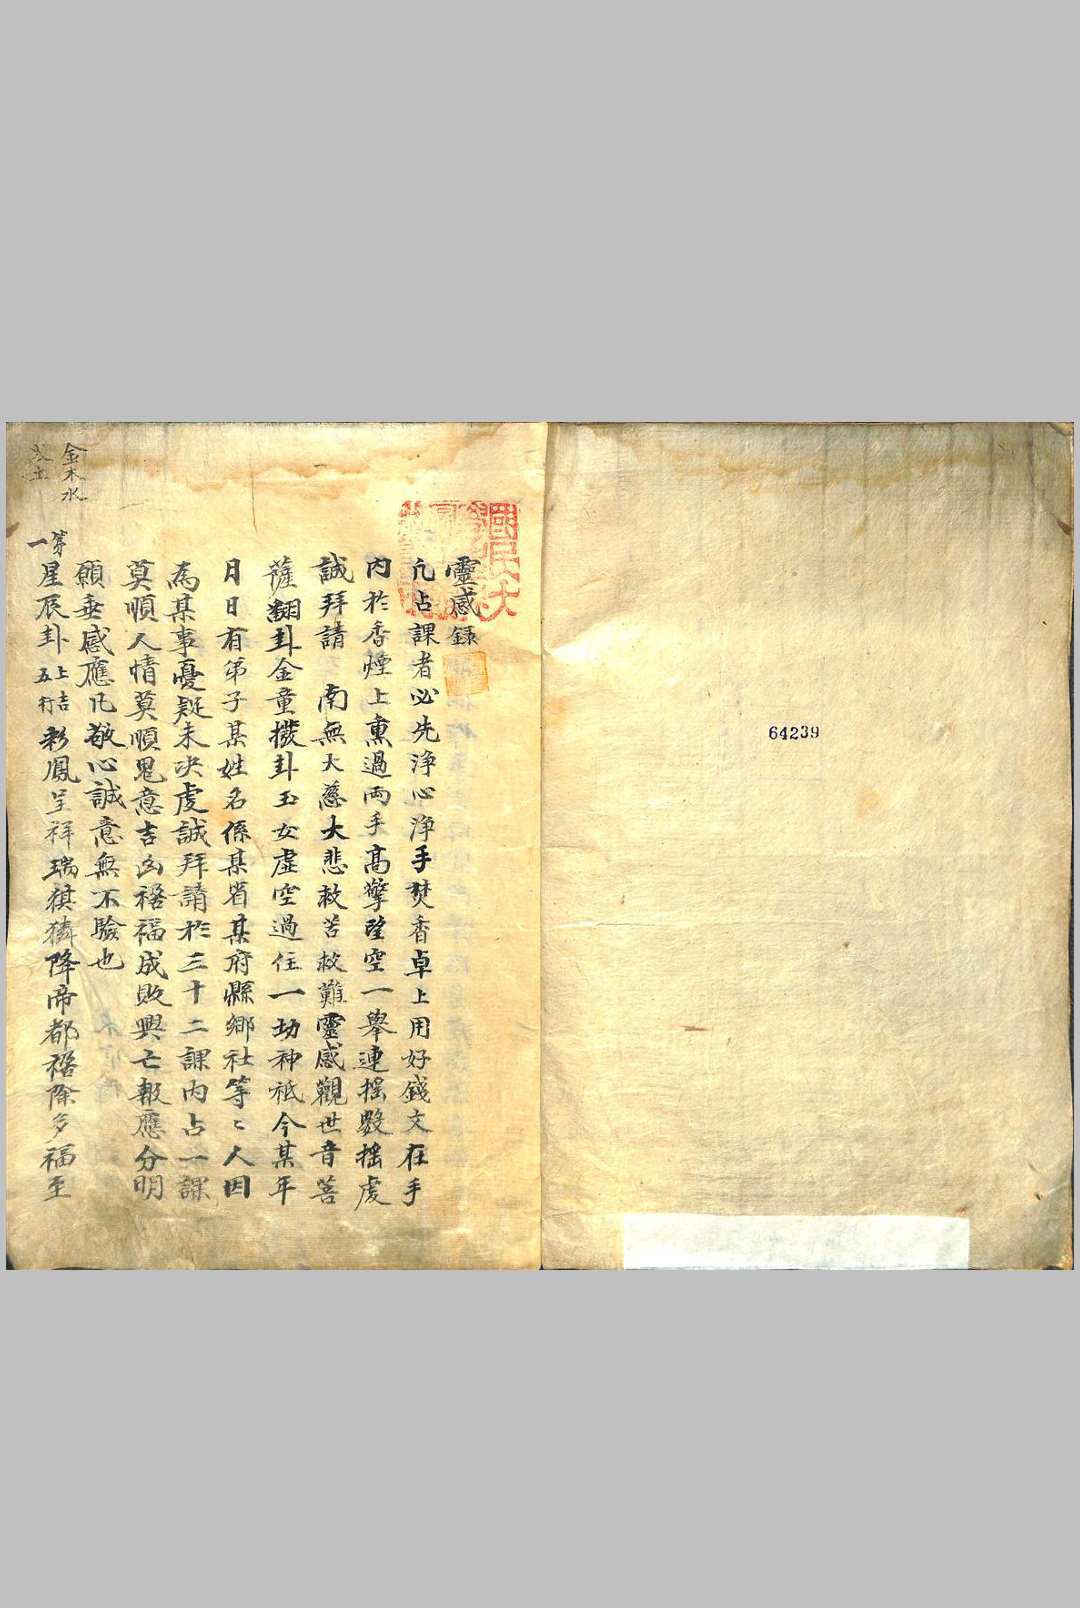 64239
靈感録
凢占課者必先浄心浄手焚香卓上用好錢文在手
内於香煙上熏過両手高擎望空一舉連摇數摇虔
誠拜請 南無大慈大悲救苦救難靈感觀世音菩
薩翻卦金童擲卦玉女虛空過往一切神祇今某年
月日有弟子某姓名係某省某府縣鄉社等〻人因
為某事憂疑未决虔誠拜請於三十二課内占一課
莫順人情莫順鬼意吉凶禍福成敗興亡報應分明
願垂感應凢敬心誠意無不驗也
第一 星辰卦 上吉 五行 彩鳳呈祥瑞祺獜降帝都禍除多福至
金木水
土